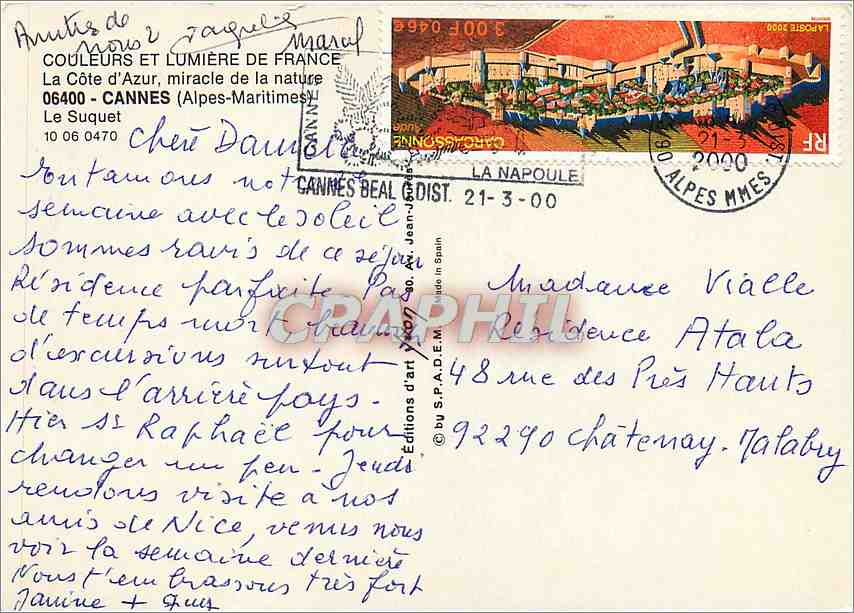 Amitiés de
nous 2 Jaqueline
Marcel
COULEURS ET LUMIÈRE DE FRANCE
La Côte d'Azur, miracle de la nature
06400 - CANNES (Alpes-Maritimes)
Le Suquet
10 06 0470
Chère
semaine avec le soleil
sommes ravis de ce séjour
Résidence parfaite Pas
de temps mort beaucoup
d'excursions surtout
dans l'arrière pays.
Hier St Raphaël pour
changer un peu - Jeudi
rendons visite à nos
amis de Nice, venus nous
voir la semaine dernière
Nous t'embrassons très fort
Janine +
3.00 F 0,46€
LA POSTE 2000
CARCASSONNE
Aude
RF
CANNES
LA NAPOULE
CANNES BEAL C DIST. 21-3-00
21-3
2000
06 ALPES MMES
Éditions d'art Yvon 90, Av. Jean-Jaurès
© by S.P.A.D.E.M. Made in Spain
CPAPHIL
Madame Vialle
Résidence Atala
48 rue des Près Hauts
92290 Châtenay-Malabry